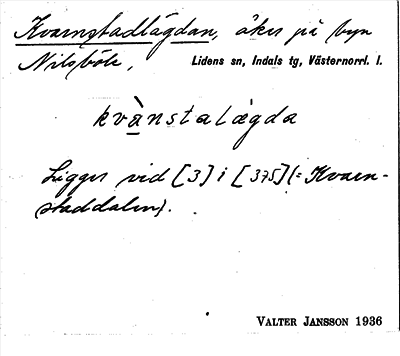 Kvarnstadlägdan, åker på byn
Nilsböle, Lidens sn, Indals tg, Västernorrl. l.
kvànstalägda
Ligger vid [3] i [375] (= Kvarn-
staddalen).
VALTER JANSSON 1936